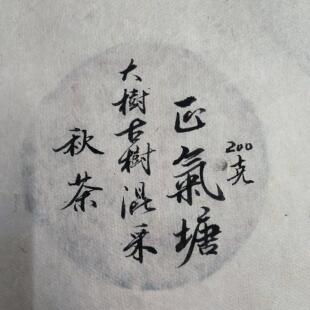 正氣塘
200克
大樹古樹混采
秋茶